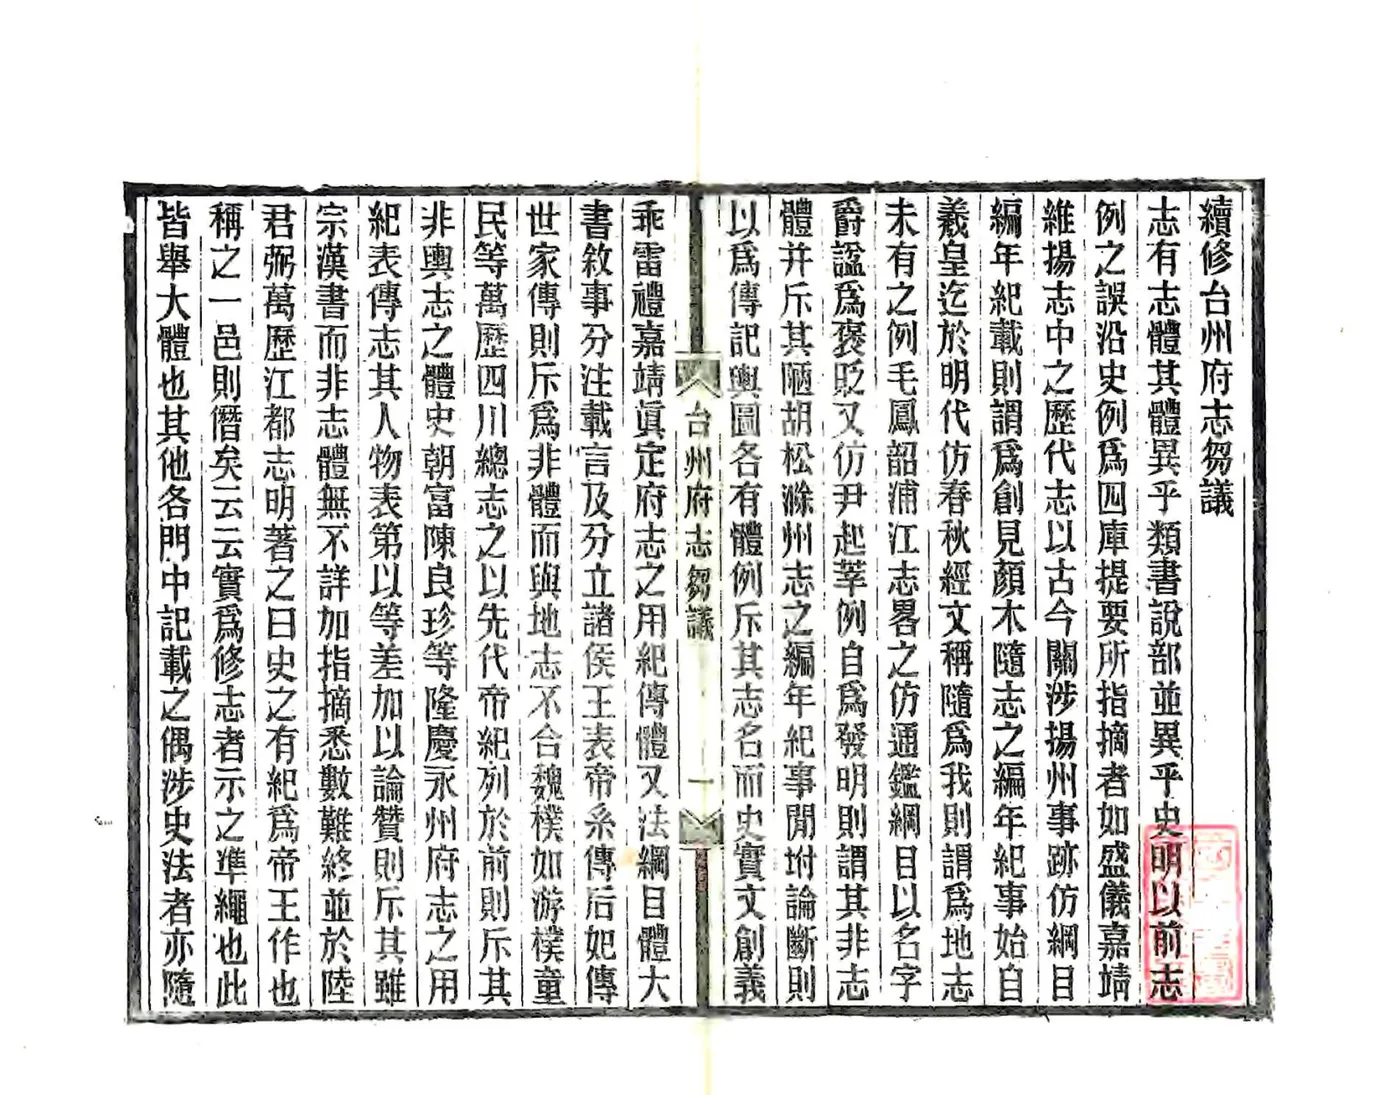 續修台州府志芻議
志有志體其體異乎類書說部並異乎史明以前志
例之誤沿史例爲四庫提要所指摘者如盛儀嘉靖
維揚志中之歷代志以古今關涉揚州事跡仿綱目
編年紀載則謂爲創見顏木隨志之編年紀事始自
羲皇迄於明代仿春秋經文稱隨爲我則謂爲地志
未有之例毛鳳韶浦江志畧之仿通鑑綱目以名字
爵諡爲褒貶又仿尹起莘例自爲發明則謂其非志
體并斥其陋胡松滁州志之編年紀事閒坿論斷則
以爲傳記輿圖各有體例斥其志名而史實文創義
台州府志芻議
一
乖雷禮嘉靖眞定府志之用紀傳體又法綱目體大
書敘事分注載言及分立諸侯王表帝系傳后妃傳
世家傳則斥爲非體而與地志不合魏樸如游樸童
民等萬歷四川總志之以先代帝紀列於前則斥其
非輿志之體史朝富陳良珍等隆慶永州府志之用
紀表傳志其人物表第以等差加以論贊則斥其雖
宗漢書而非志體無不詳加指摘悉數難終並於陸
君弼萬歷江都志明著之曰史之有紀爲帝王作也
稱之一邑則僭矣云云實爲修志者示之凖繩也此
皆舉大體也其他各門中記載之偶涉史法者亦隨